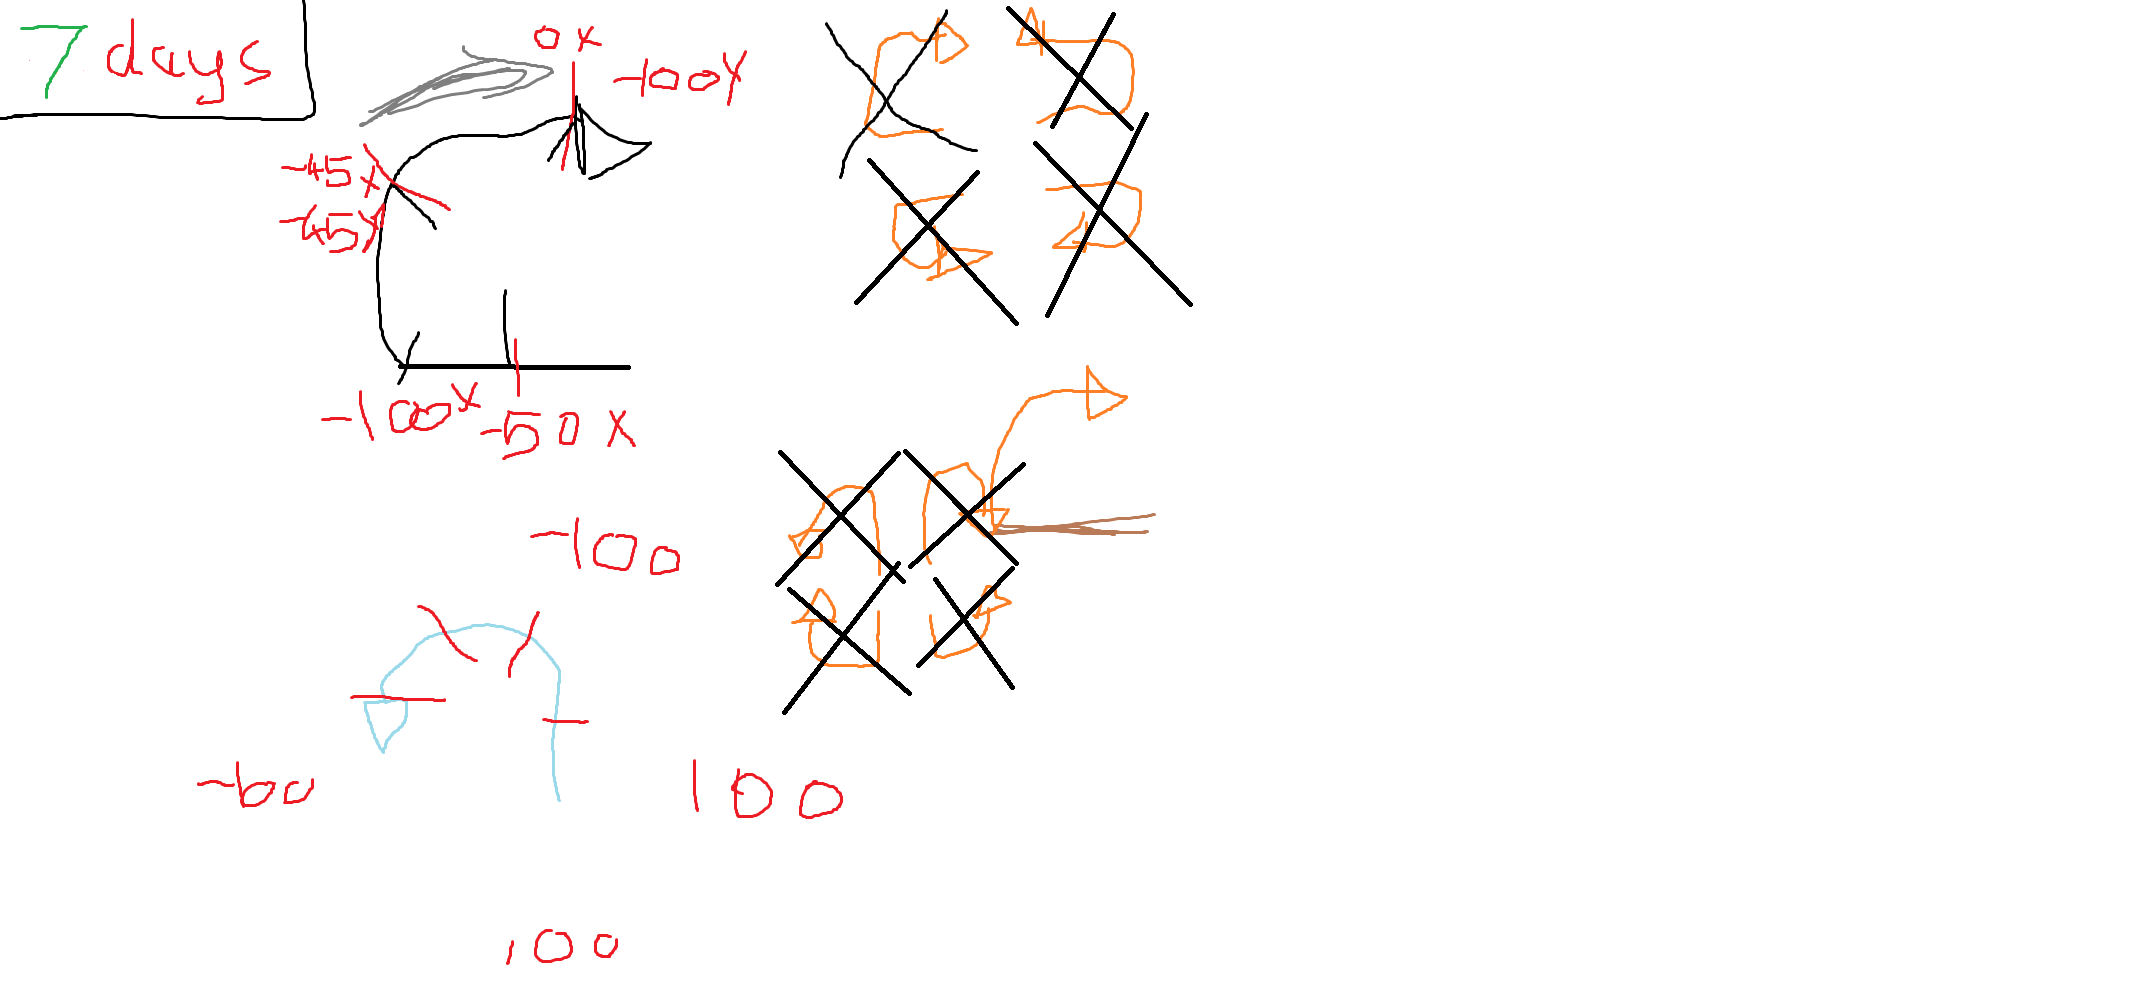 7 days
0 x
-100Y
-45 x
-45Y
-100x
-50 X
-100
-60
100
100